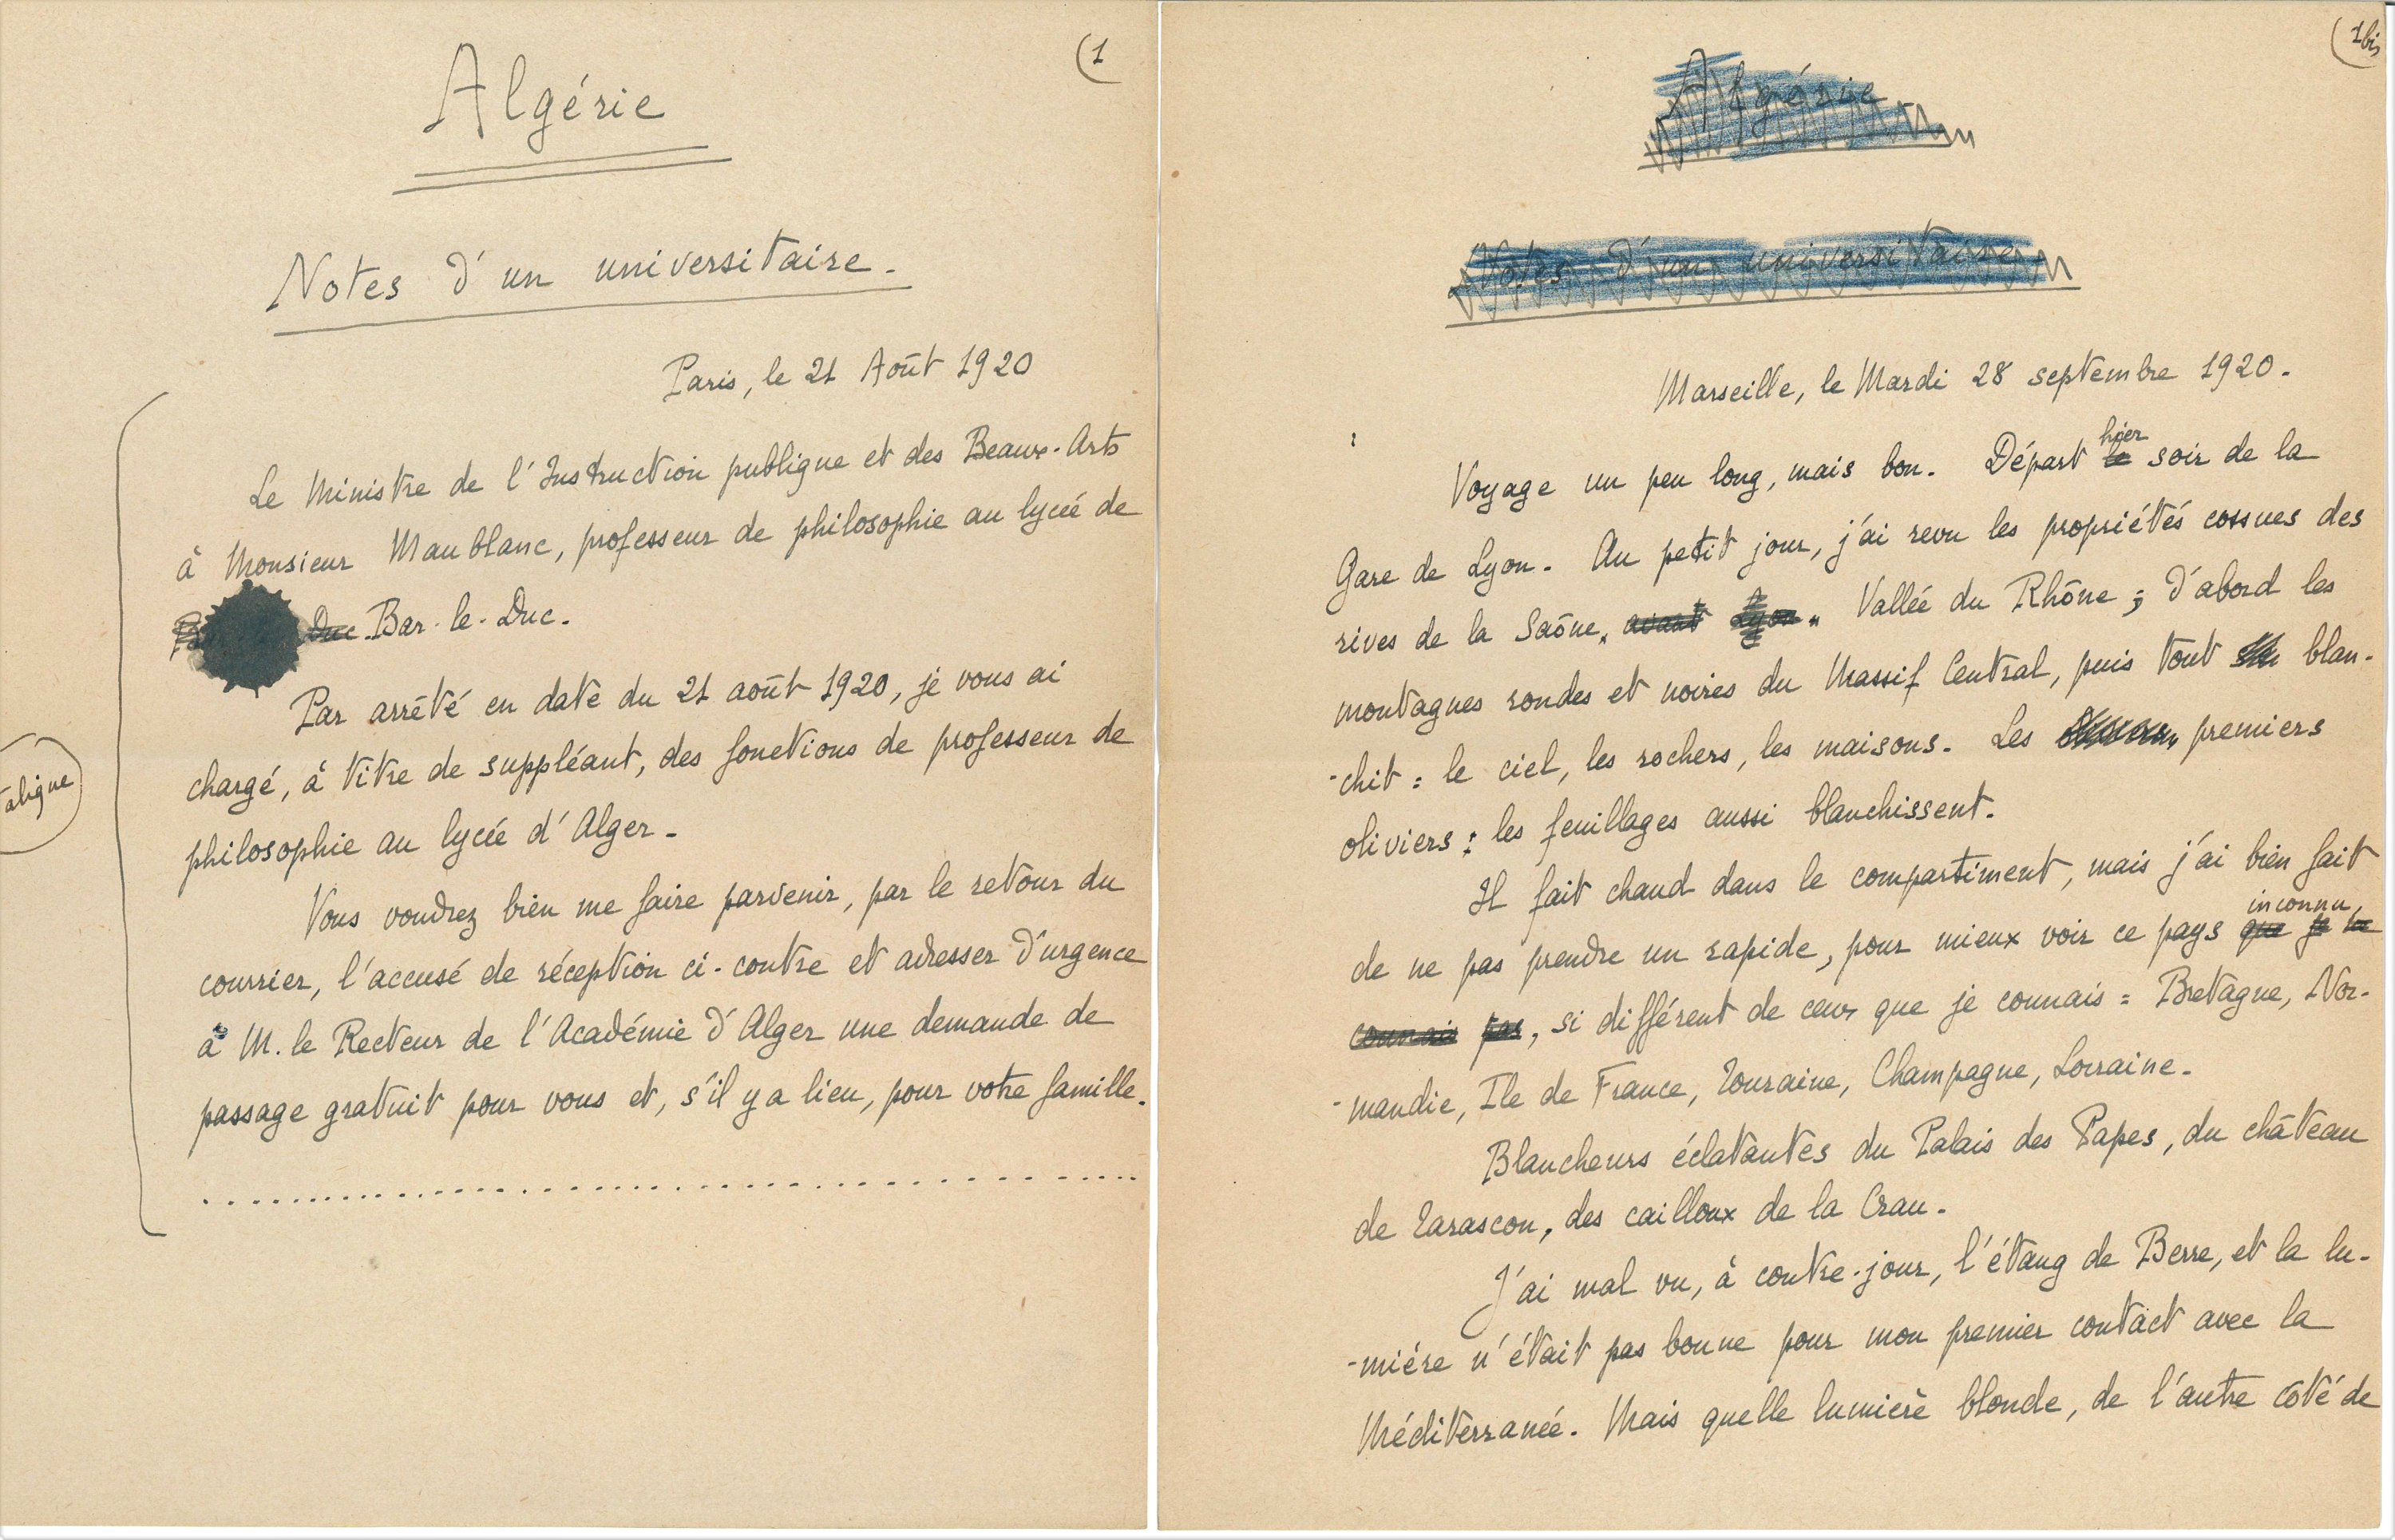 (1
Algérie
Notes d'un universitaire.
Paris, le 21 Août 1920
Le Ministre de l'Instruction publique et des Beaux-Arts
à Monsieur Maublanc, professeur de philosophie au lycée de
Duc. Bar-le-Duc.
Par arrêté en date du 21 août 1920, je vous ai
chargé, à titre de suppléant, des fonctions de professeur de
philosophie au lycée d'Alger.
Vous voudrez bien me faire parvenir, par le retour du
courrier, l'accusé de réception ci-contre et adresser d'urgence
à M. le Recteur de l'Académie d'Alger une demande de
passage gratuit pour vous et, s'il y a lieu, pour votre famille.
................................................
(1bis
Algérie
Notes d'un universitaire
Marseille, le Mardi 28 septembre 1920.
Voyage un peu long, mais bon. Départ le hier soir de la
Gare de Lyon. Au petit jour, j'ai revu les propriétés cossues des
rives de la Saône. avant Lyon. Vallée du Rhône ; d'abord les
montagnes rondes et noires du Massif Central, puis tout blan-
-chit : le ciel, les rochers, les maisons. Les premiers
oliviers : les feuillages aussi blanchissent.
Il fait chaud dans le compartiment, mais j'ai bien fait
de ne pas prendre un rapide, pour mieux voir ce pays que je ne inconnu,
connais pas, si différent de ceux que je connais : Bretagne, Nor-
-mandie, Ile de France, Touraine, Champagne, Lorraine.
Blancheurs éclatantes du Palais des Papes, du château
de Tarascon, des cailloux de la Crau.
J'ai mal vu, à contre-jour, l'étang de Berre, et la lu-
-mière n'était pas bonne pour mon premier contact avec la
Méditerranée. Mais quelle lumière blonde, de l'autre côté de